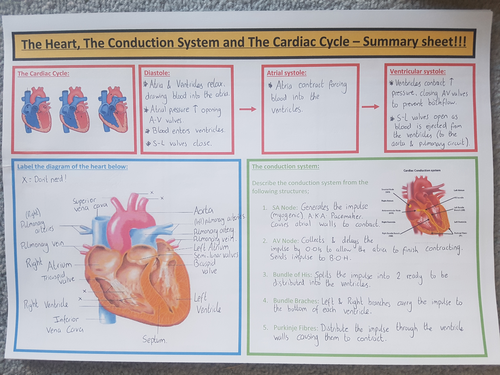 The Heart, The Conduction System and The Cardiac Cycle – Summary sheet!!!
The Cardiac Cycle:
Diastole:
* Atria & Ventricles relax,
drawing blood into the atria.
* Atrial pressure ↑ opening
A-V valves
* Blood enters ventricles
* S-L valves close.
Atrial systole:
* Atria contract forcing
blood into the
ventricles.
Ventricular systole:
* Ventricles contract ↑
pressure, closing AV valves
to prevent backflow.
* S-L valves open as
blood is ejected from
the ventricles (to the
aorta & pulmonary circuit)
Label the diagram of the heart below:
X = Don't need!
Superior
vena cava
(Right)
Pulmonary
arteries
Pulmonary vein
Right Atrium
Tricuspid
valve
Right Ventricle
Inferior
Vena Cava
Aorta
Pulmonary artery
Pulmonary vein
Left Atrium
Semi-lunar valves
Bicuspid
valve
Left
Ventricle
Septum
The conduction system:
Describe the conduction system from the
following structures:
1. SA Node: Generates the impulse
(myogenic) A.K.A Pacemaker.
Causes atrial walls to contract.
2. AV Node: Collects & delays
the impulse by to allow the atria to finish contracting.
Sends impulse to B.O.H.
3. Bundle of His: Splits the impulse into 2 ready to be
distributed into the ventricles.
4. Bundle Braches: Left & Right branches carry the impulse to
the bottom of each ventricle.
5. Purkinje Fibres: Distribute the impulse through the ventricle
walls causing them to contract.
Cardiac Conduction system